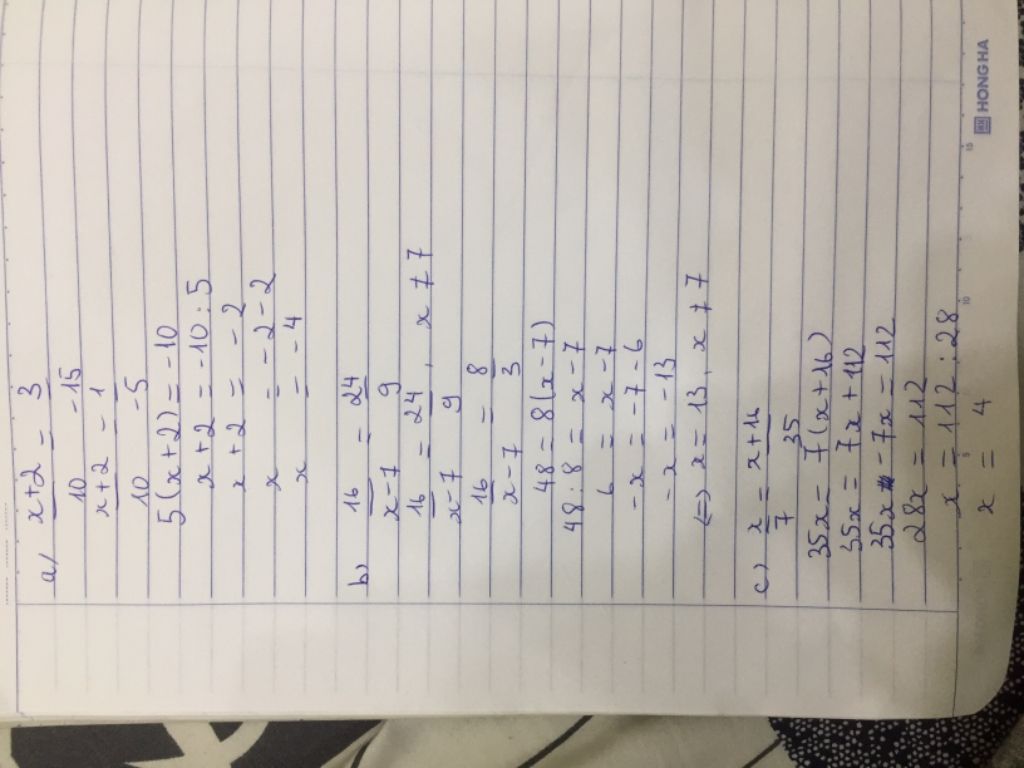 a/ x+2 = 3
10 -15
x+2 = 1
10 -5
5(x+2) = -10
x+2 = -10 : 5
x+2 = -2
x = -2-2
x = -4
b) 16 = 24
x-7 9
16 = 24 , x ≠ 7
x-7 9
16 = 8
x-7 3
48 = 8(x-7)
48 : 8 = x-7
6 = x-7
-x = -7-6
-x = -13
⇔ x = 13, x ≠ 7
c) x = x+16
7 35
35x = 7(x+16)
35x = 7x+112
35x -7x = 112
28x = 112
x = 112 : 28
x = 4
HONG HA